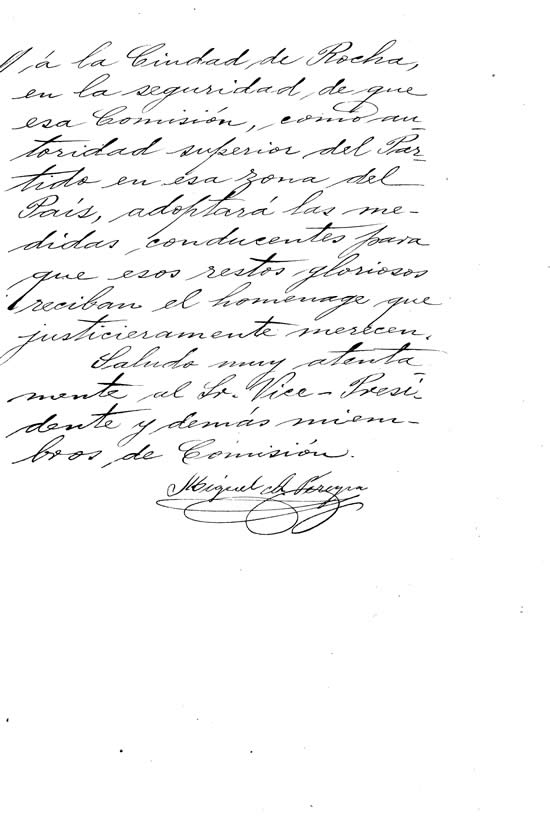 á la Ciudad de Rocha,
en la seguridad de que
esa Comisión, como au
toridad superior del Par-
tido en esa zona del
País, adoptará las me-
didas conducentes para
que esos restos gloriosos
reciban el homenage que
justicieramente merecen.
Saludo muy atenta-
mente al Sr. Vice-Presi-
dente y demás miem-
bros de Comisión.
Miguel A. Pereyra